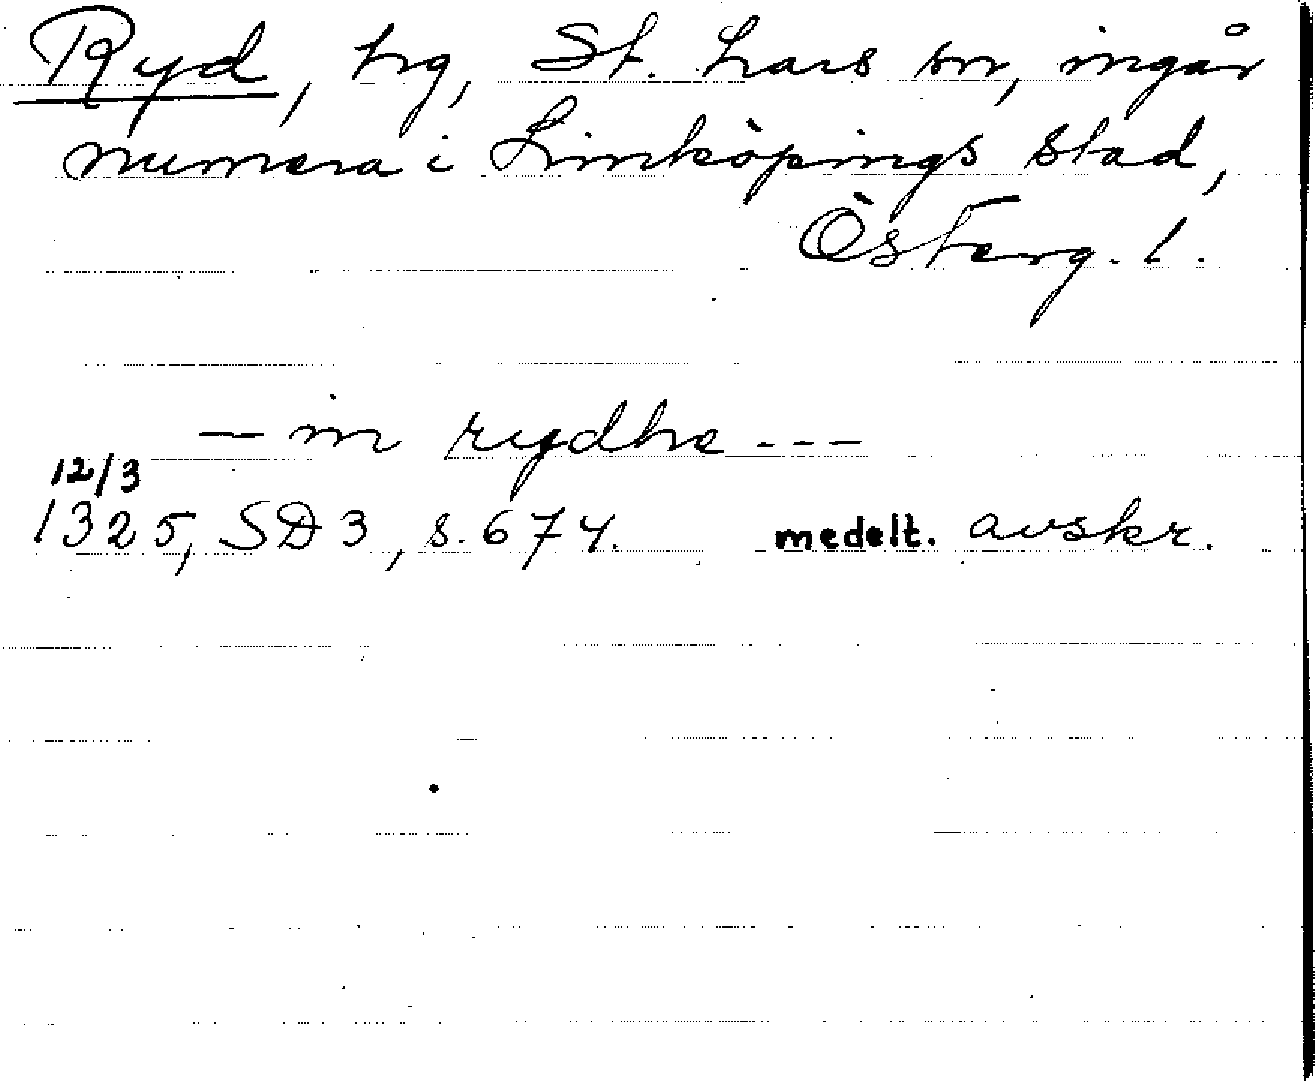 Ryd, hg, St. Lars sn, ingår
numera i Linköpings stad,
Österg. l.
— in rydhe ---
12/3
1325, SD 3, s. 674. medelt. avskr.